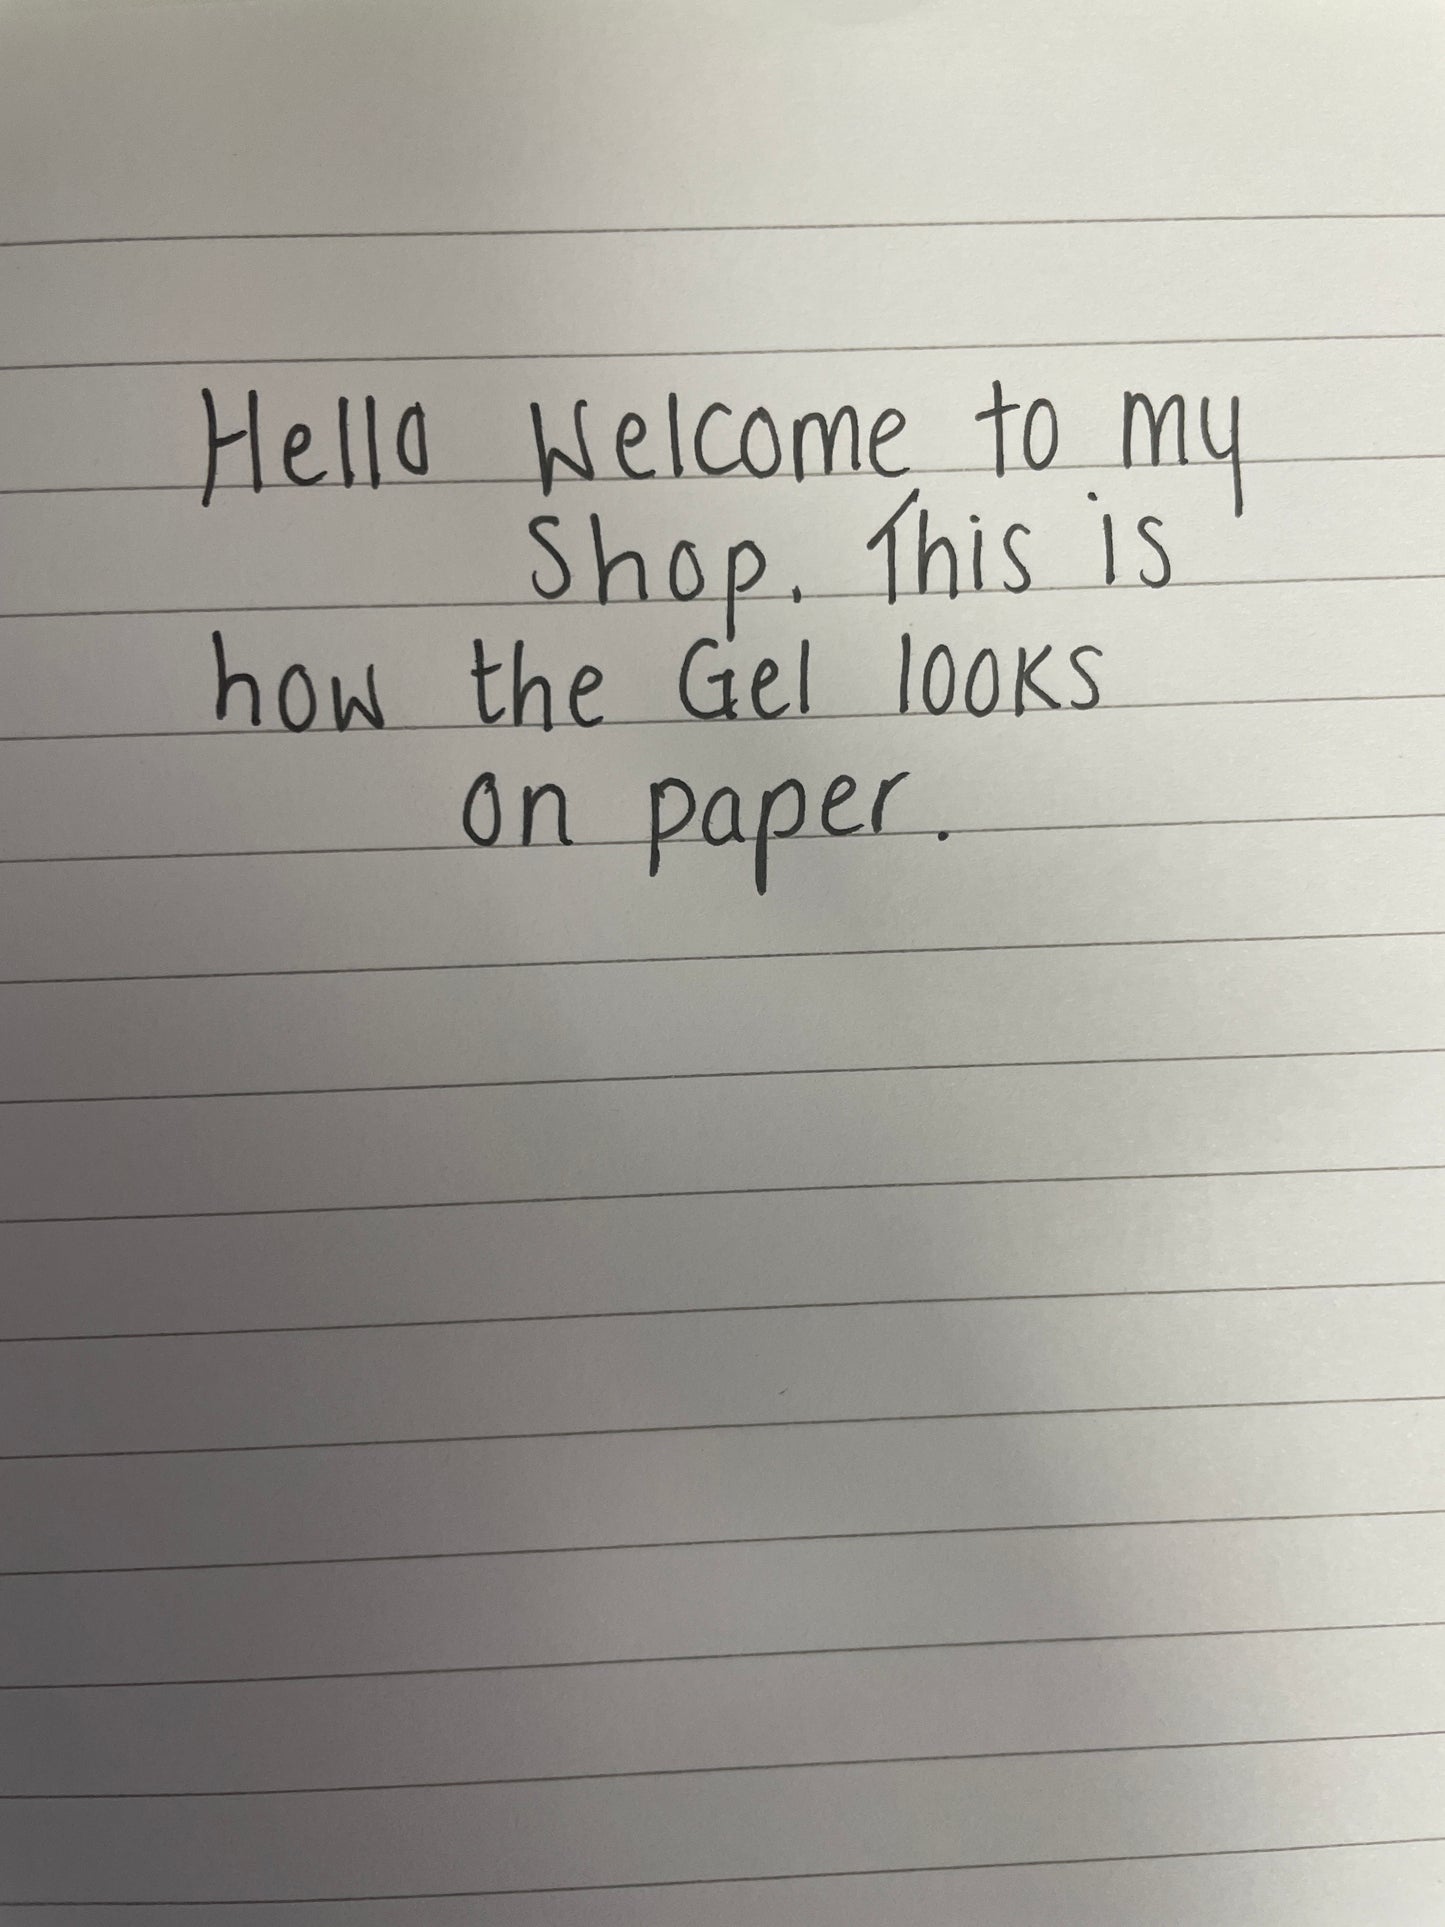 Hello Welcome to my
Shop. This is
how the Gel looks
on paper.